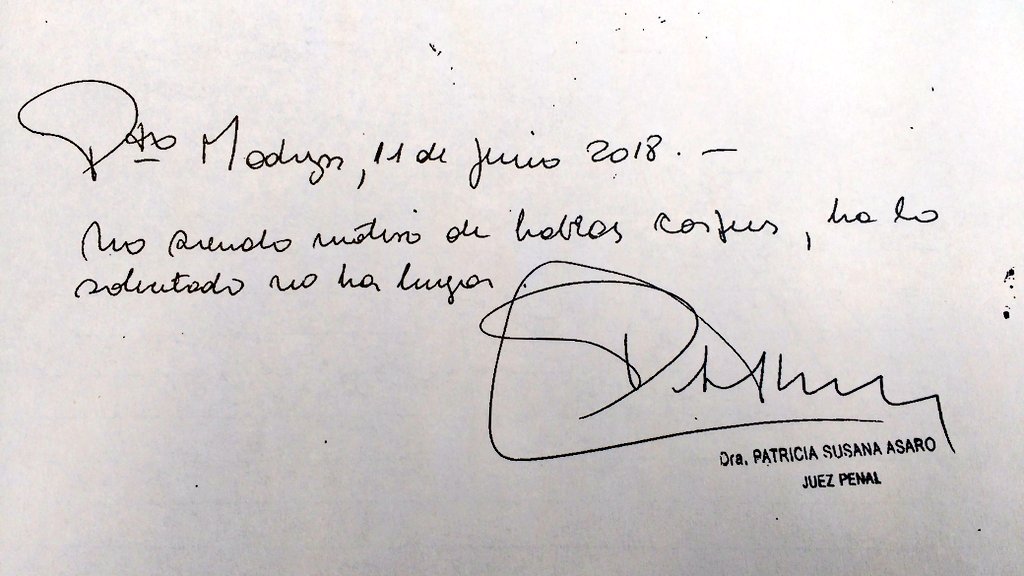 Pto Madryn, 11 de junio 2018. —
No siendo motivo de habeas corpus, ha lo
solicitado no ha lugar.
Dra. PATRICIA SUSANA ASARO
JUEZ PENAL